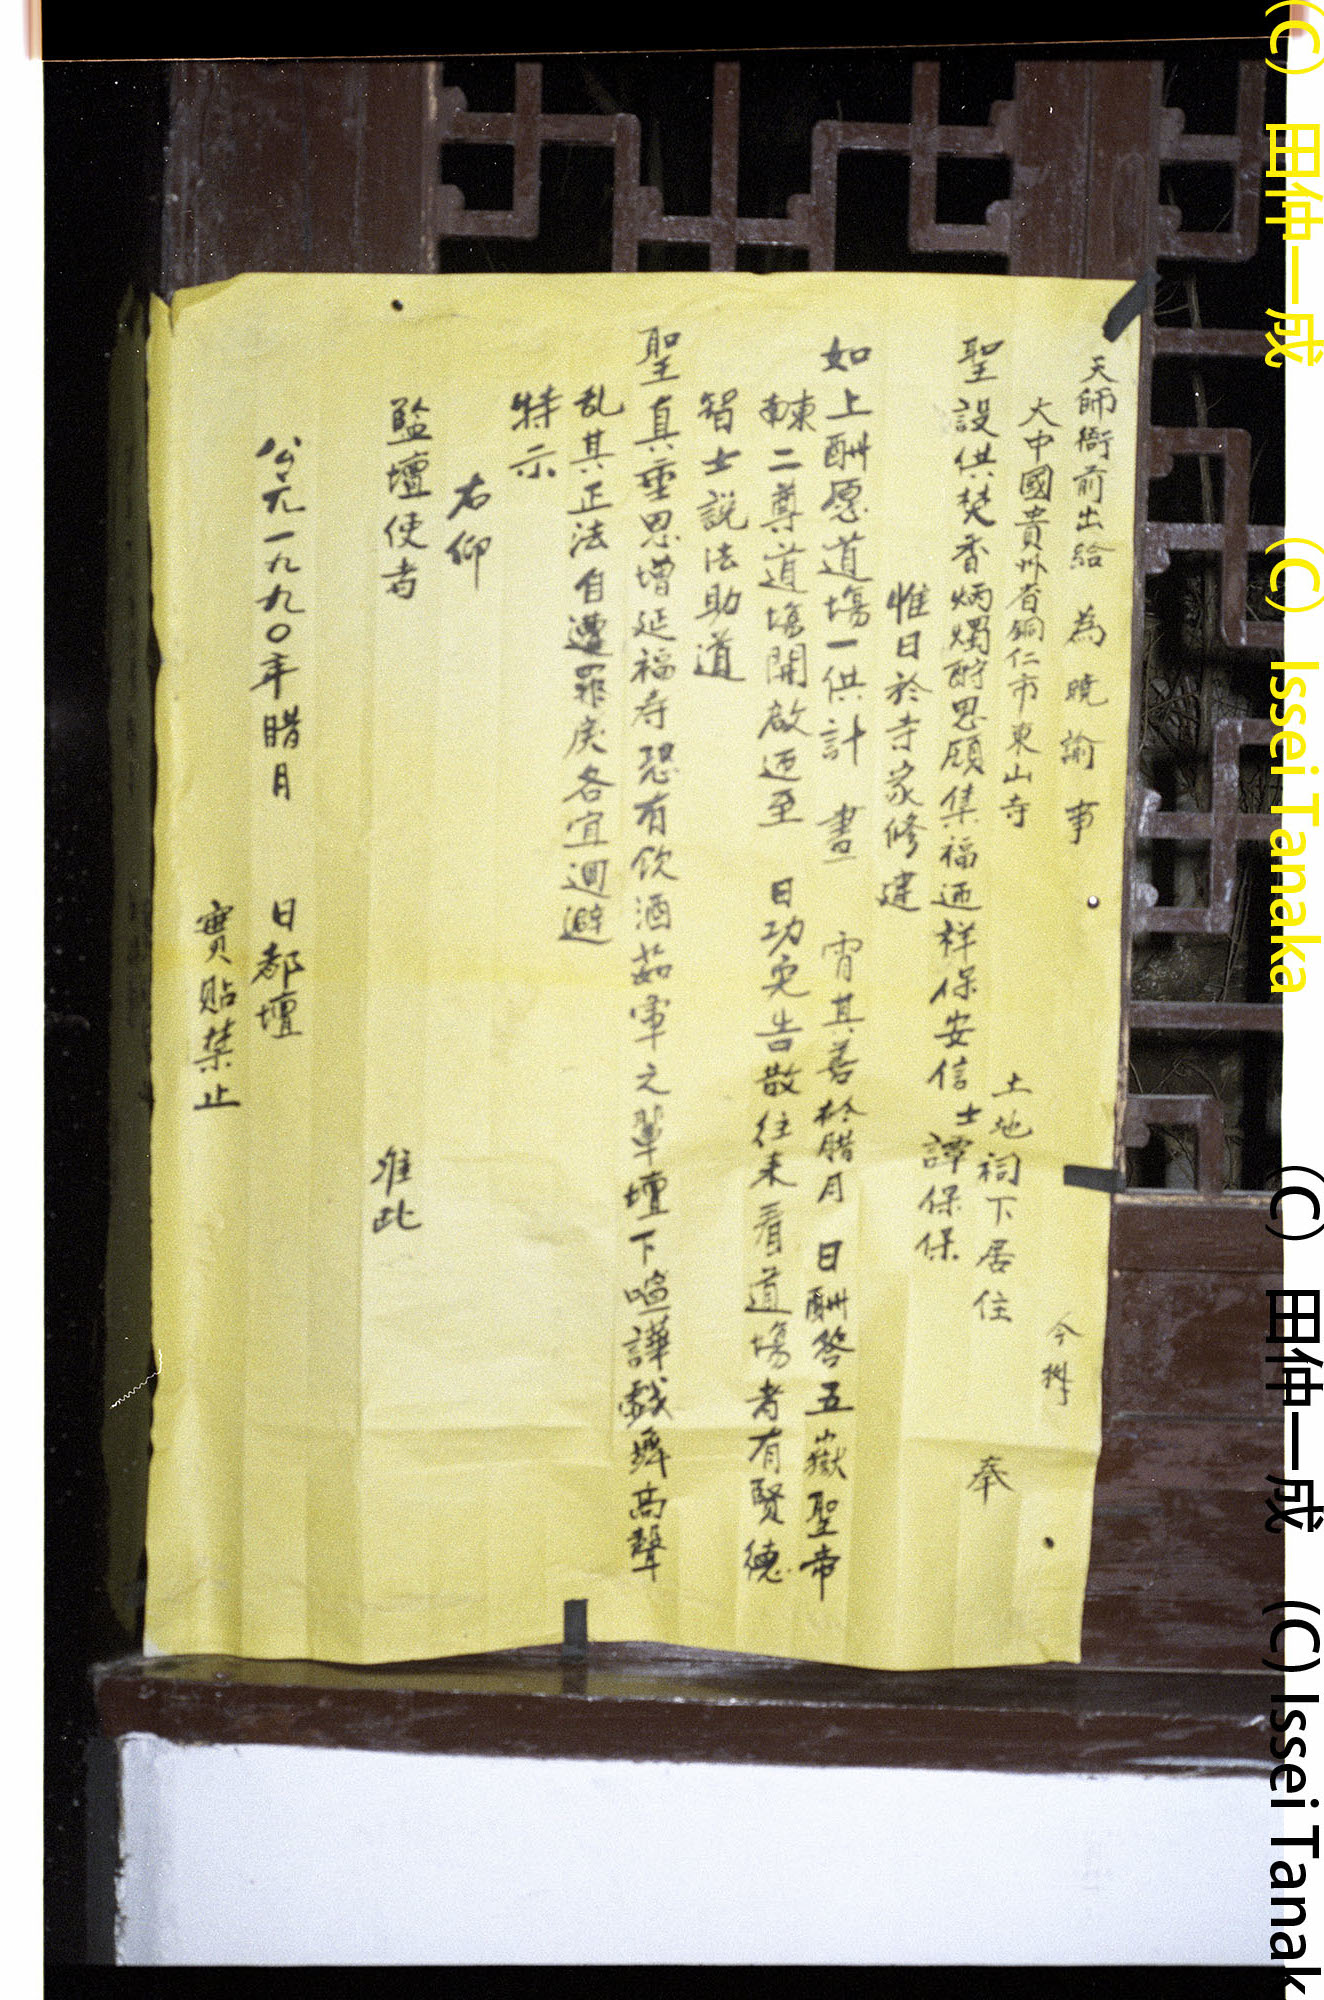 天師衙前出給 為曉諭事 今掛
大中國貴州省銅仁市東山寺 土地祠下居住 奉
聖設供焚香炳燭酧恩愿集福迎祥保安信士譚保保
惟日於寺家修建
如上酬愿道塲一供計 晝 宵其善於腊月 日酬答五嶽聖帝
南東二尊道塲開啟迊至 日功完告散往来看道塲者有賢德
智士説法助道
聖真垂恩增延福寿恐有飲酒茹軍之輩壇下喧譁戲舞高聲
乱其正法自遭罪戾各宜迴避
特示
右仰
監壇使者 准此
公元一九九〇年腊月 日都壇
實貼禁止
(C) 田仲一成 (C) Issei Tanaka (C) 田仲一成 (C) Issei Tanak